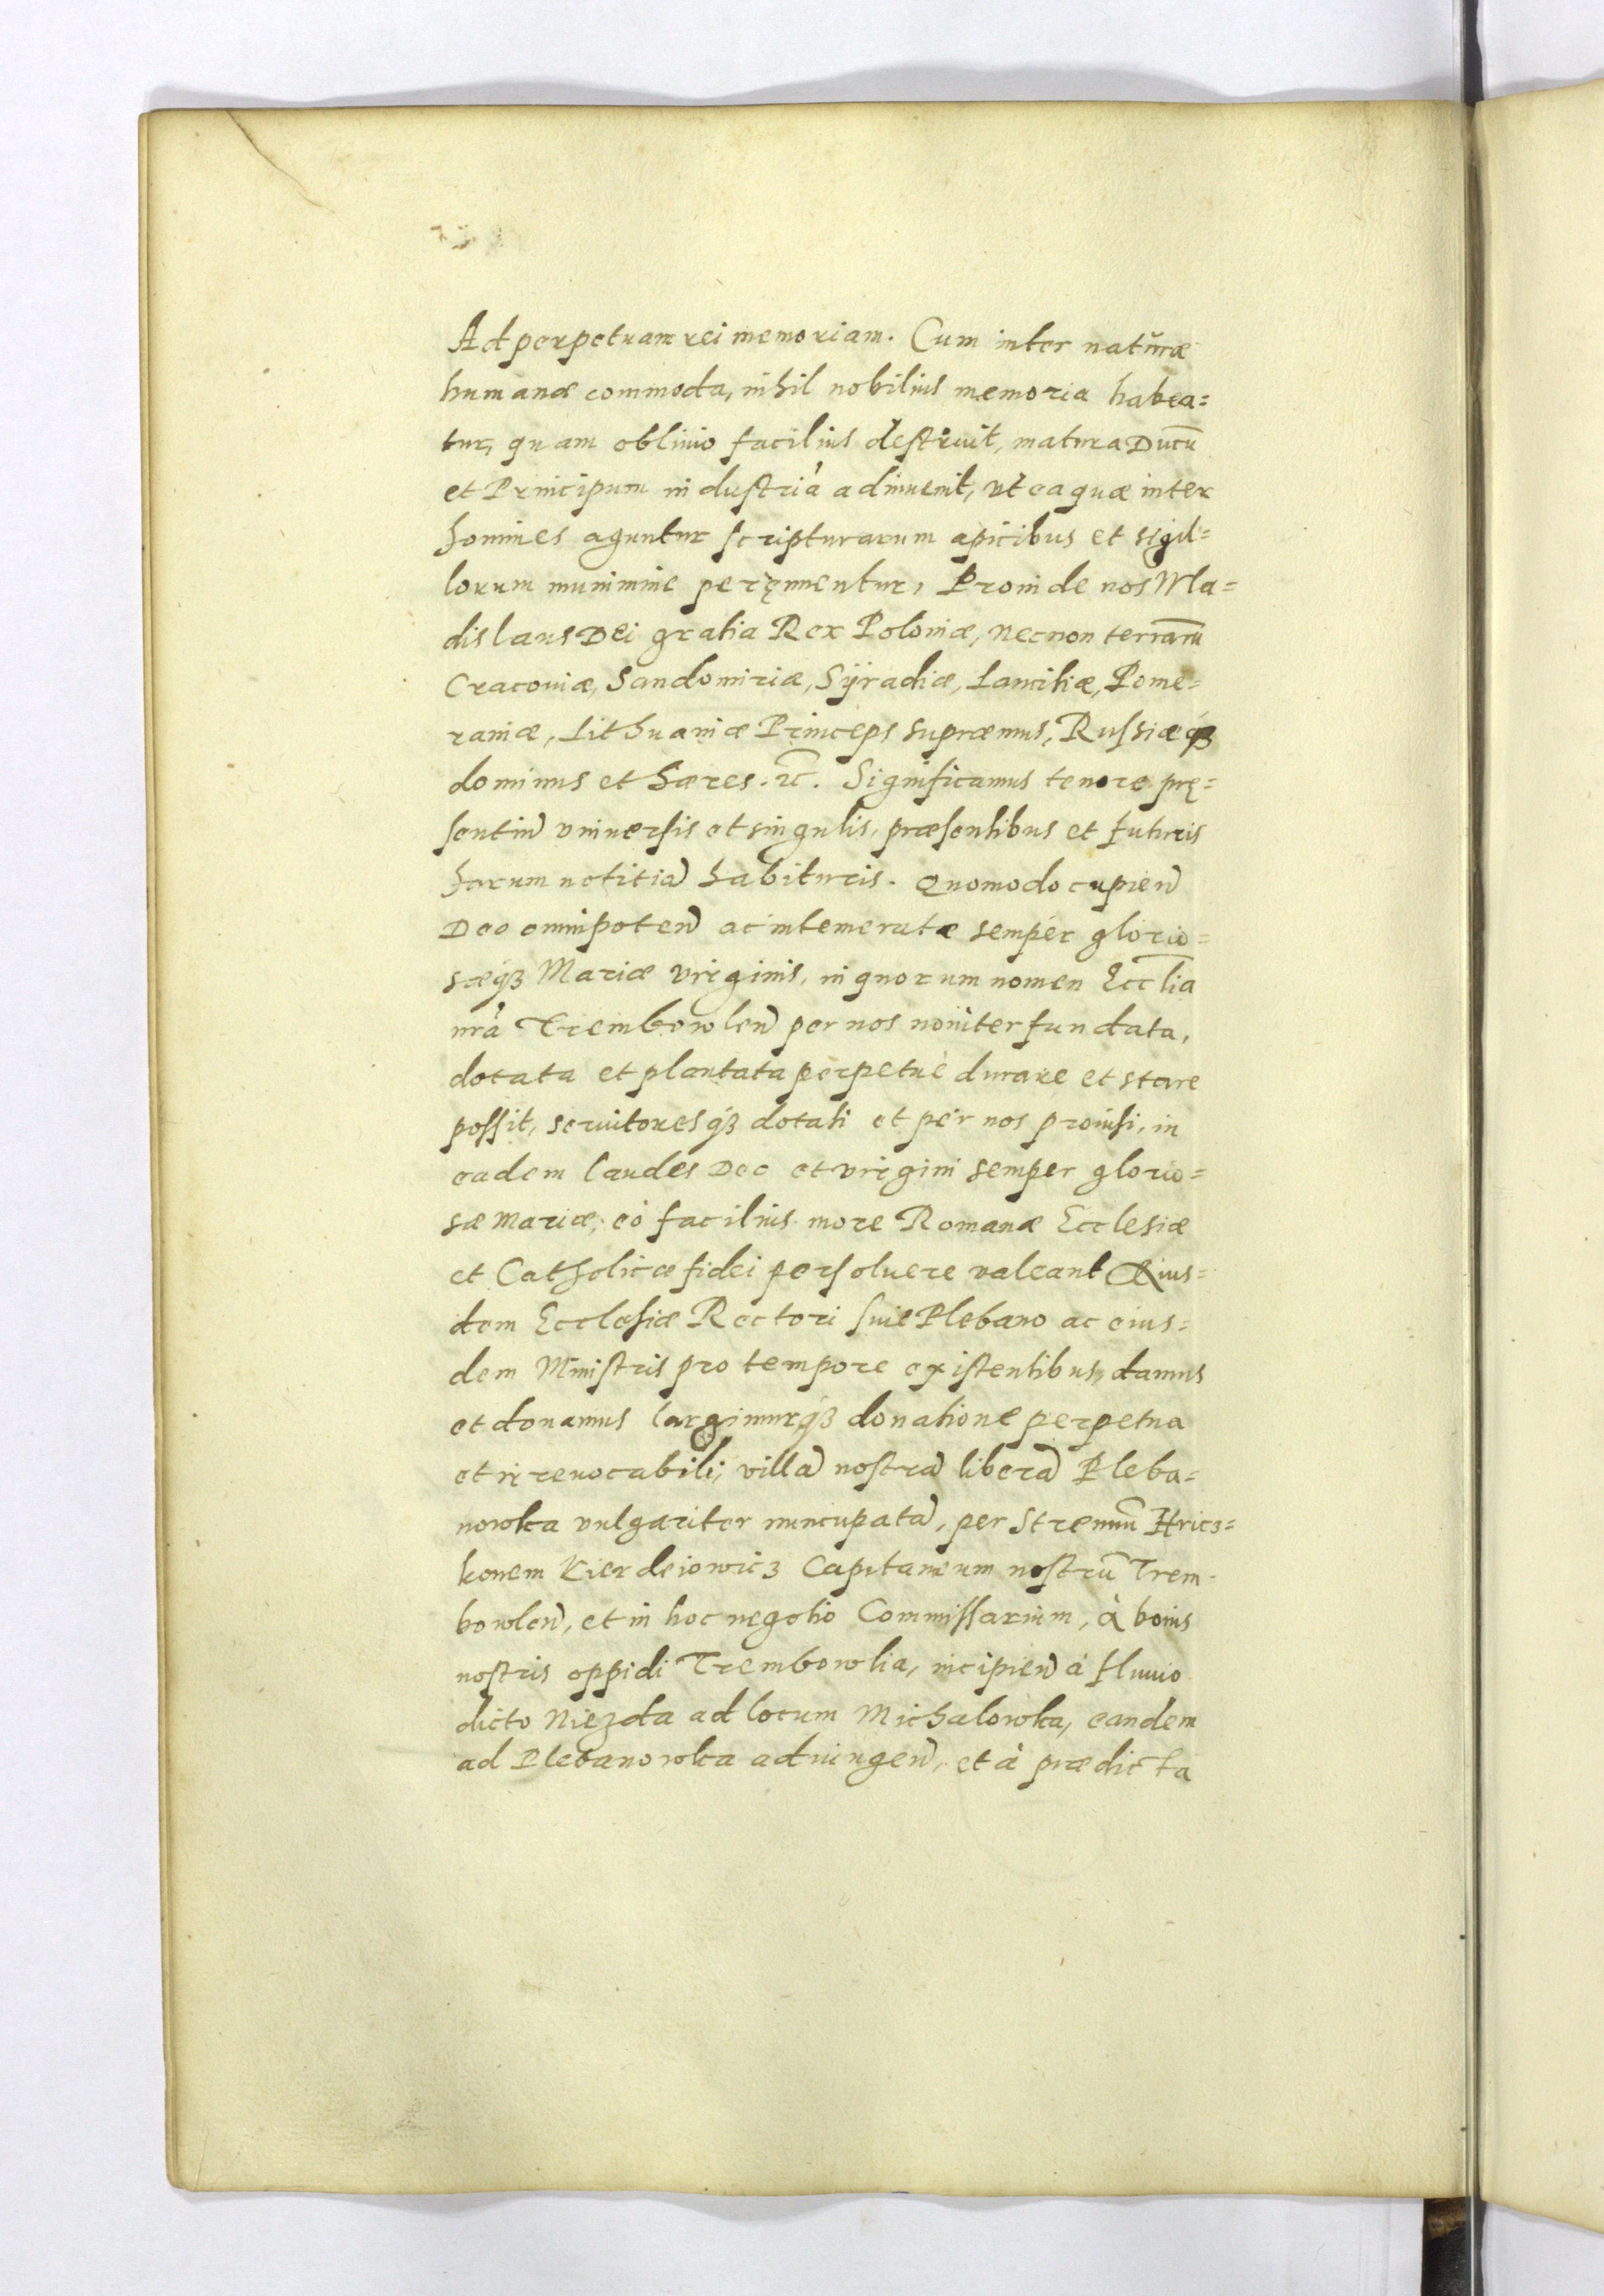 Ad perpetuam rei memoriam. Cum inter naturæ
humanæ commoda, nihil nobilius memoria habea=
tur, quam obliuio facilius destruit, matura Ducū
et Principum industria adinuenit, vt ea quæ inter
homines aguntur scripturarum apicibus et sigil=
lorum munimine peręnnentur, Proinde nos Wla=
dislaus Dei gratia Rex Poloniæ, necnon terrarū
Cracouiæ, Sandomiriæ, Sÿradiæ, Lanciliæ, Pome=
raniæ, Lithuaniæ Princeps supræmus, Russiæqȝ
dominus et hæres. &c. Significamus tenore prę=
sentiū vniuersis et singulis, præsentibus et futuris
harum notitiā habituris. Quomodo cupień
Deo omnipoteń ac intemeratæ semper glorio=
sæqȝ Mariæ virginis, in quorum nomen Ecclīa
nrã Trembowleń per nos nouiter fundata,
dotata et plantata perpetuè durare et stare
possit, seruitoresqȝ dotati et per nos prouisi, in
eadem laudes Deo et virgini semper glorio=
sæ Mariæ, eò facilius more Romanæ Ecclesiæ
et Catholicæ fidei persoluere valeant Eius=
dem Ecclesiæ Rectori siue Plebano ac eius=
dem Ministris pro tempore existentibus, damus
et donamus largimurqȝ donatione perpetua
et irreuocabili, villā nostrā liberā Pleba=
nowka vulgariter nuncupatā, per Strenuū Hricȝ=
konem Kierdeiowicȝ Capitaneum nostrū Trem-
bowleń, et in hoc negotio Commissarium, à bonis
nostris oppidi Trembowlia, incipień à fluuio
dicto Niezda ad locum Michalowka, eandem
ad Plebanowka adiungeń, et à prædicta